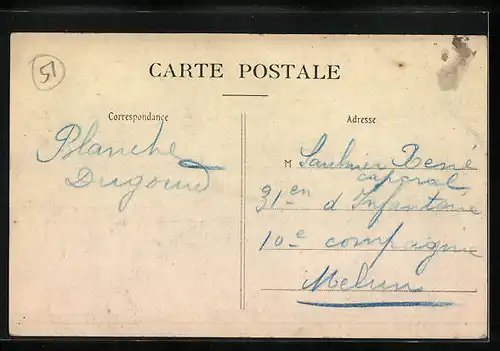 51
CARTE POSTALE
Correspondance
Adresse
Blanche
Dugourd
M Saulnier René
caporal
31en d'Infanterie
10e compagnie
Melun